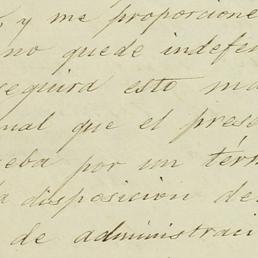 , y me proporcione
no quede indefen
seguira esto ma
nual que el prese
eba por un térm
la disposicion de
de administraci